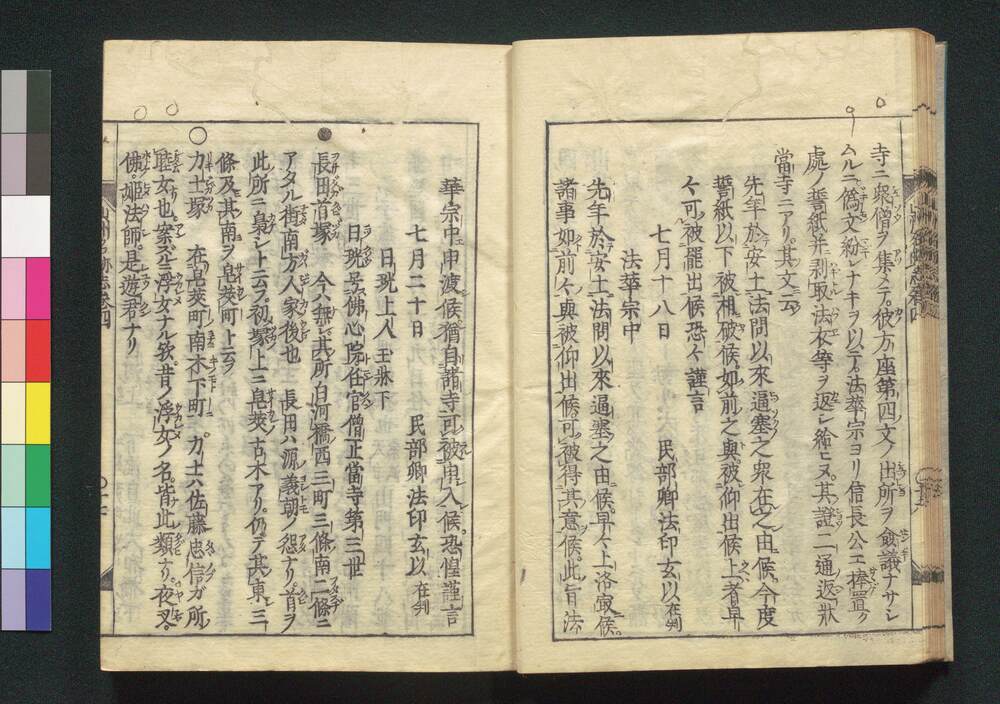 寺ニ衆僧ヲ集メテ。彼方座第四文ノ出所ヲ僉議ナサシ
ムルニ偽文紛レナキヲ以テ。法華宗ヨリ信長公エ捧置ク
處ノ誓紙并ニ剥取法衣等ヲ返シ給ヒヌ。其證二通返狀
當寺ニアリ。其文云
先年於安土法問以來逼塞之衆在之由候。今度
誓紙以下被相破候。如前之與被仰出候上者早
々可被罷出候恐々謹言
七月十八日　民部卿法印玄以在判
法華宗中
先年於安土法問以來逼塞之由候。早々上洛寂候。
諸事如前々與被仰出候。可被得其意候。此旨法
華宗中申渡候猶自諸寺可被申入候。恐惶謹言
七月二十日　民部卿法印玄以在判
日珖上人玉牀下
日珖是佛心院任官僧正當寺第三世
●長田首塚　今ハ無シ其所白河橋西三町三條南二條ニ
アタル街南方人家後也　長田ハ源義朝ノ怨ナリ。首ヲ
此所ニ梟シト云フ。初塚上ニ皂莢古木アリ。仍テ其東三
條及其南ヲ皂莢町ト云ヲ
○力士塚　在皂莢町南木下町。力士六佐藤忠信ガ所
佛。姬法師。是遊君ナリ